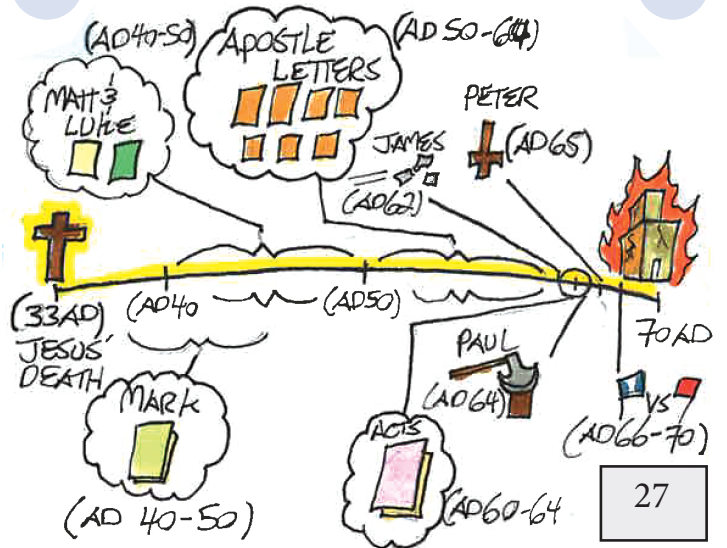 (AD 40-50)
APOSTLE
LETTERS
(AD 50-64)
MATT &
LUKE
PETER
(AD65)
JAMES
(AD62)
(33AD)
JESUS'
DEATH
(AD40
(AD50)
70 AD
MARK
(AD 40-50)
PAUL
(AD64)
ACTS
(AD60-64
VS
(AD66-70)
27